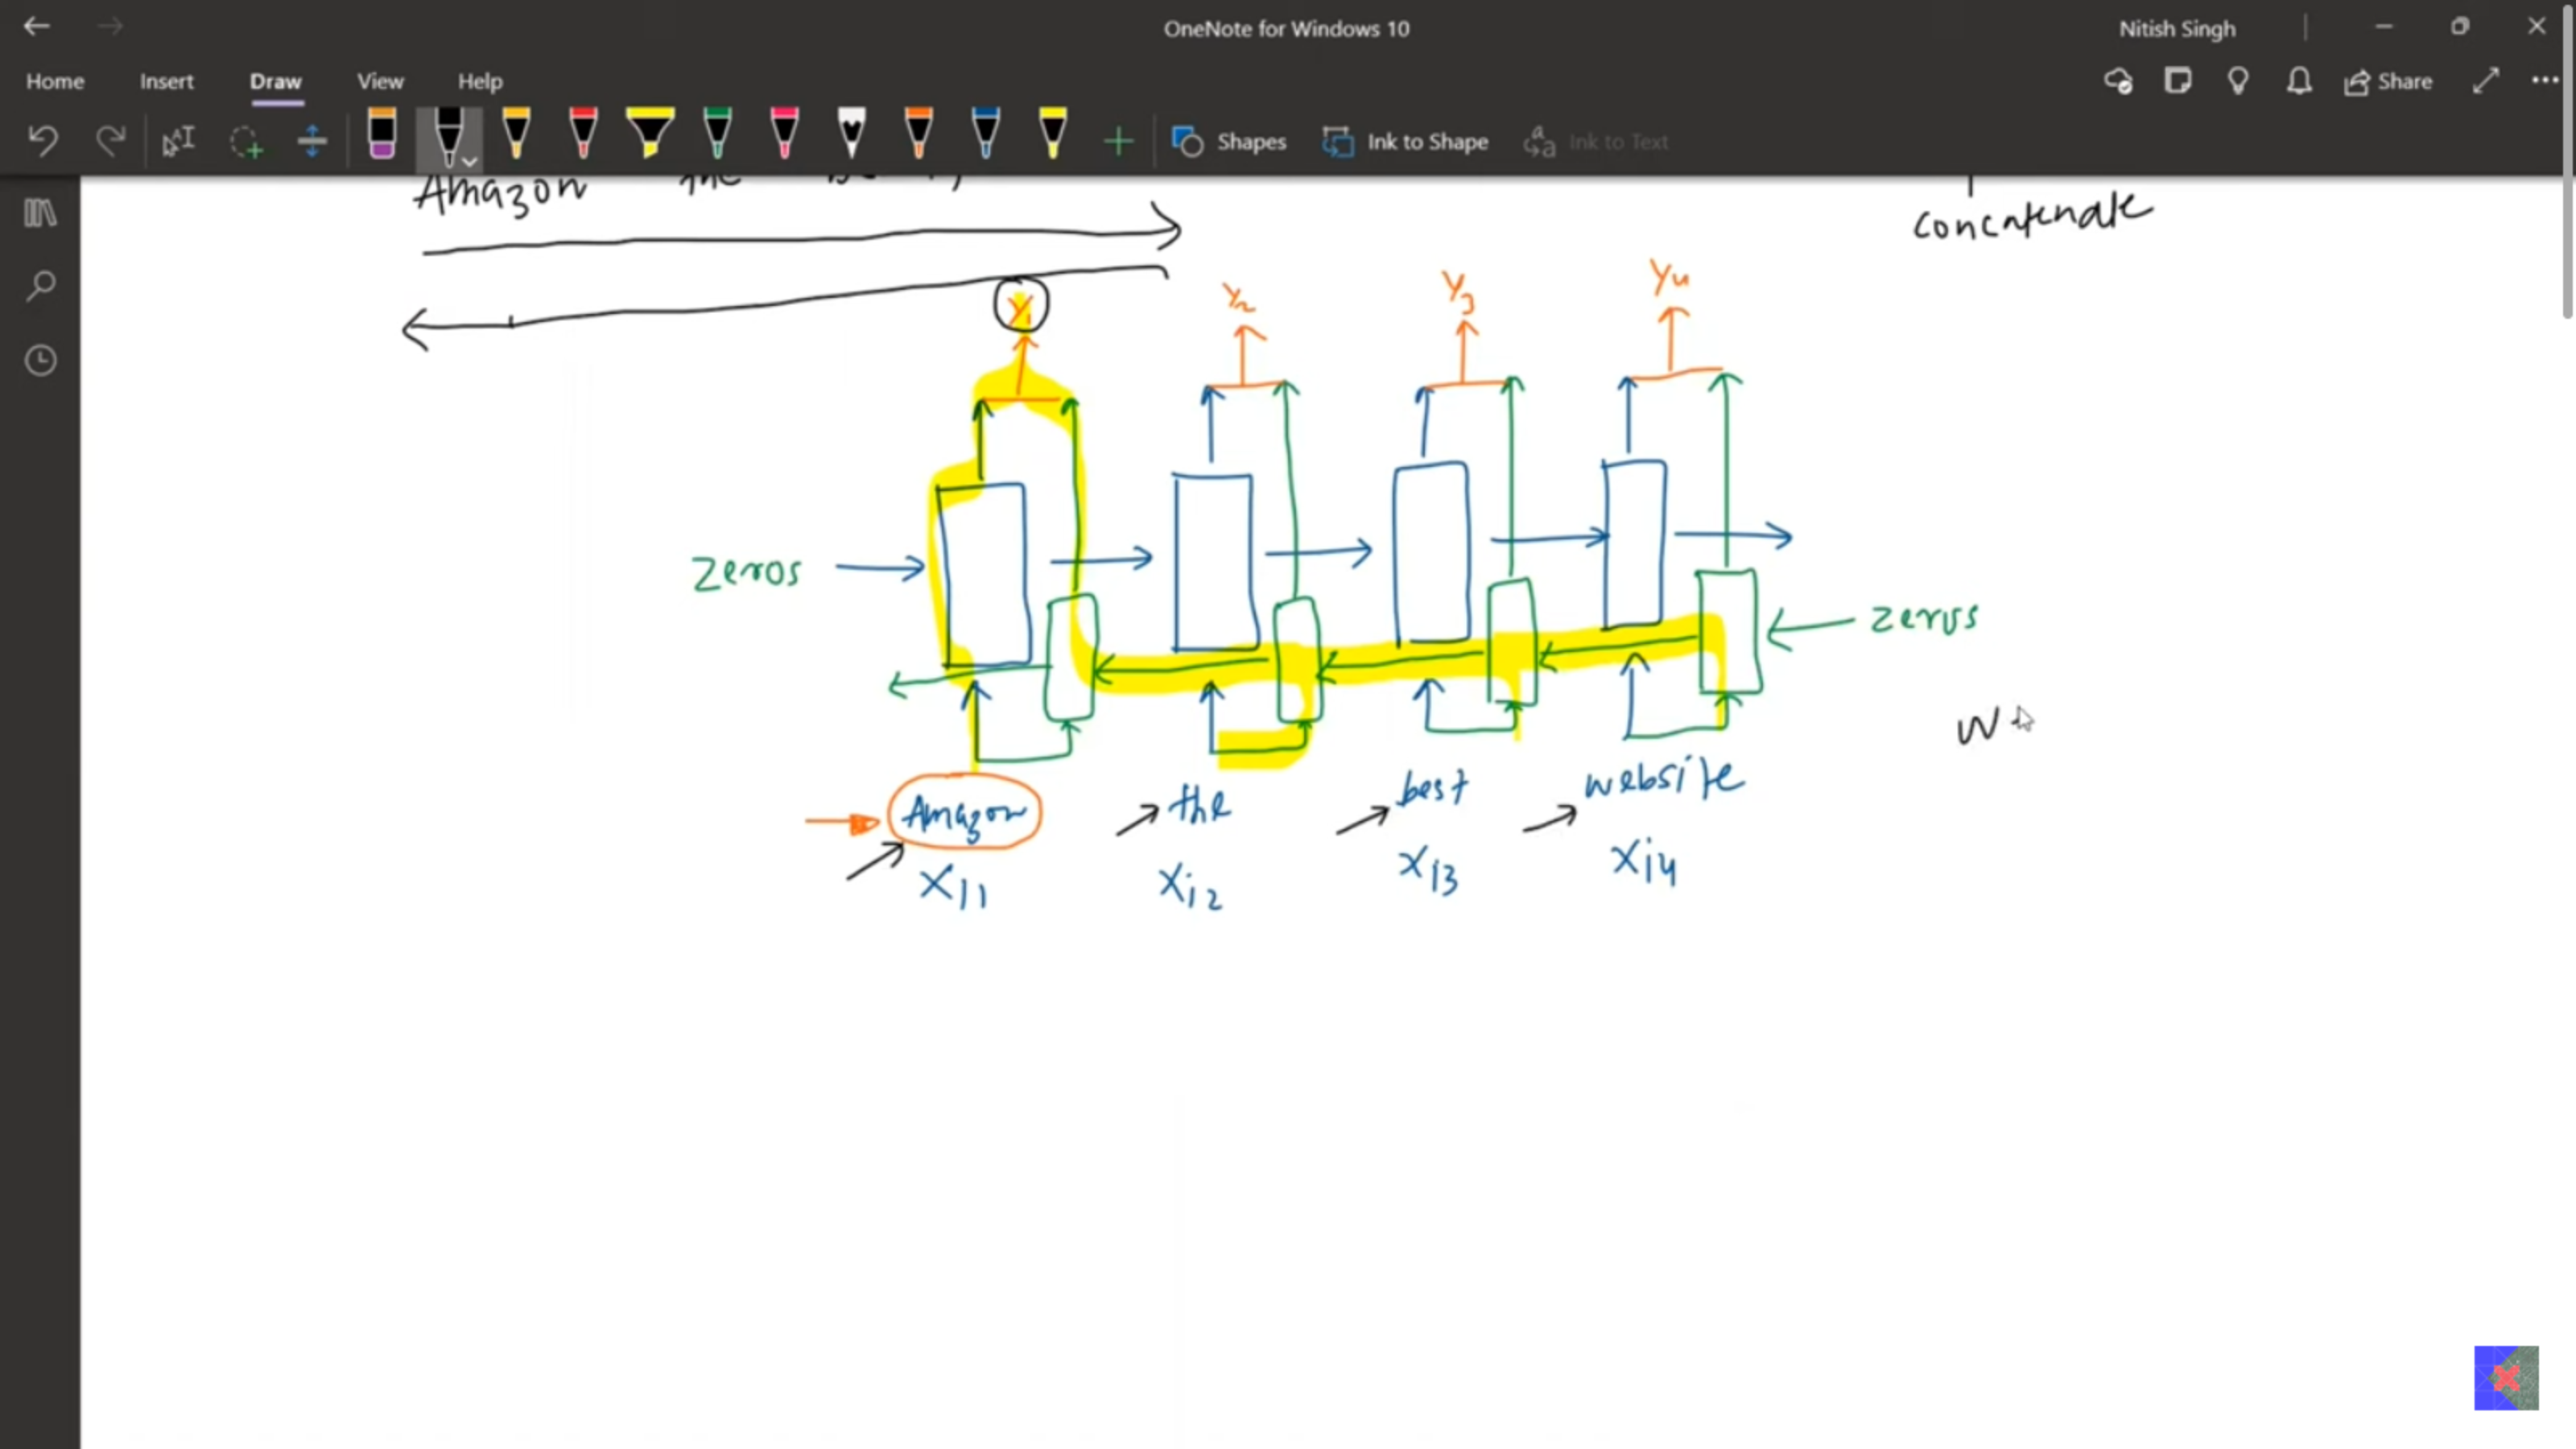 OneNote for Windows 10
Nitish Singh
Home Insert Draw View Help
Share
Shapes Ink to Shape Ink to Text
Amazon the
Concatenate
Y1 Y2 Y3 Y4
Zeros
zeros
W
Amazon the best website
X11 Xi2 Xi3 Xi4